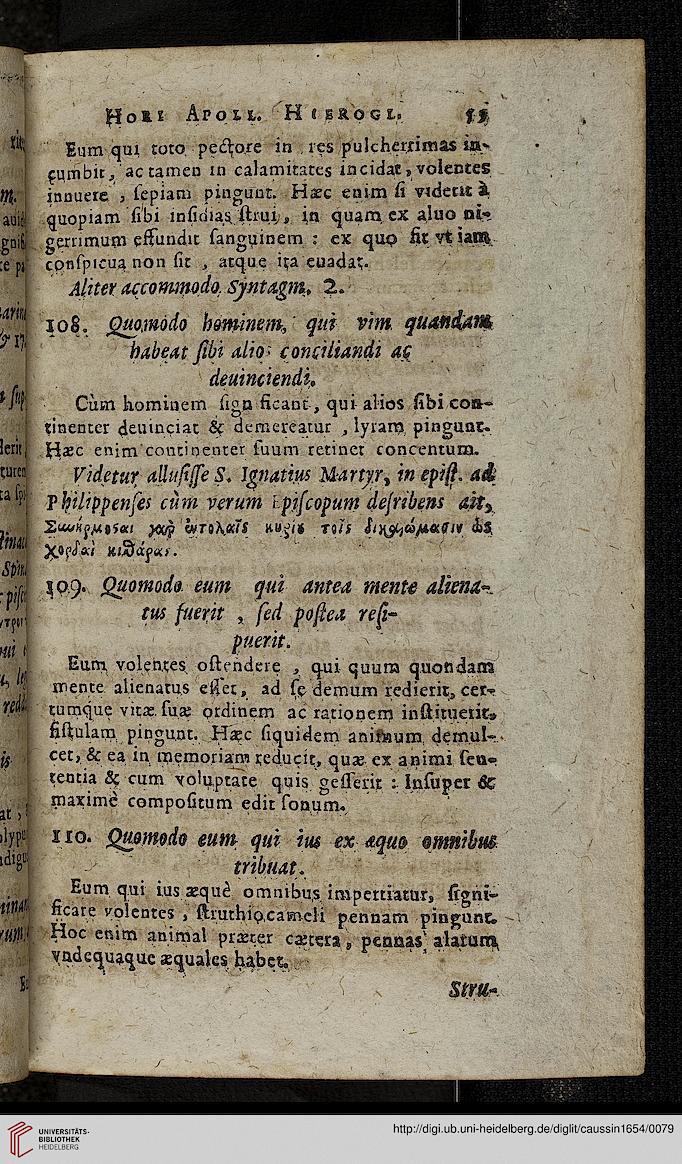 HORI APOLL. HIEROGL. 55
Eum qui toto pectore in res pulcherrimas in-
cumbit, ac tamen in calamitates incidat, volentes
innuere , ſepiam pingunt. Hæc enim ſi viderit à
quopiam ſibi inſidias ſtrui, in quam ex aluo ni-
gerrimum effundit ſanguinem : ex quo fit vt iam
conſpicua non ſit , atque ita euadat.
Aliter accommodo. Syntagm. 2.
108. Quomodo hominem, qui vim quandam
habeat ſibi alios conciliandi ac
deuinciendi.
Cùm hominem ſignificant, qui alios ſibi con-
tinenter deuinciat & demereatur , lyram pingunt.
Hæc enim continenter ſuum retinet concentum.
Videtur alluſiſſe S. Ignatius Martyr, in epiſt. ad
Philippenſes cùm verum Epiſcopum deſribens ait,
γὰρ ἐντολαῖς κυρίου τοῖς δικαιώμασιν ὡς
χορδαὶ κιθάρας.
109. Quomodo eum qui antea mente aliena-
tus fuerit , ſed poſtea reſi-
puerit.
Eum volentes oſtendere , qui quum quondam
mente alienatus eſſet, ad ſe demum redierit, cer-
tumque vitæ ſuæ ordinem ac rationem inſtituerit,
fiſtulam pingunt. Hæc ſiquidem animum demul-
cet, & ea in memoriam reducit, quæ ex animi ſen-
tentia & cum voluptate quis geſſerit : Inſuper &
maximè compoſitum edit ſonum.
110. Quomodo eum qui ius ex æquo omnibus
tribuat.
Eum qui ius æquè omnibus impertiatur, ſigni-
ficare volentes , ſtruthiocameli pennam pingunt.
Hoc enim animal præter cætera, pennas alarum
vndequaque æquales habet.
Stru-
UNIVERSITÄTS-
BIBLIOTHEK
HEIDELBERG
http://digi.ub.uni-heidelberg.de/diglit/caussin1654/0079